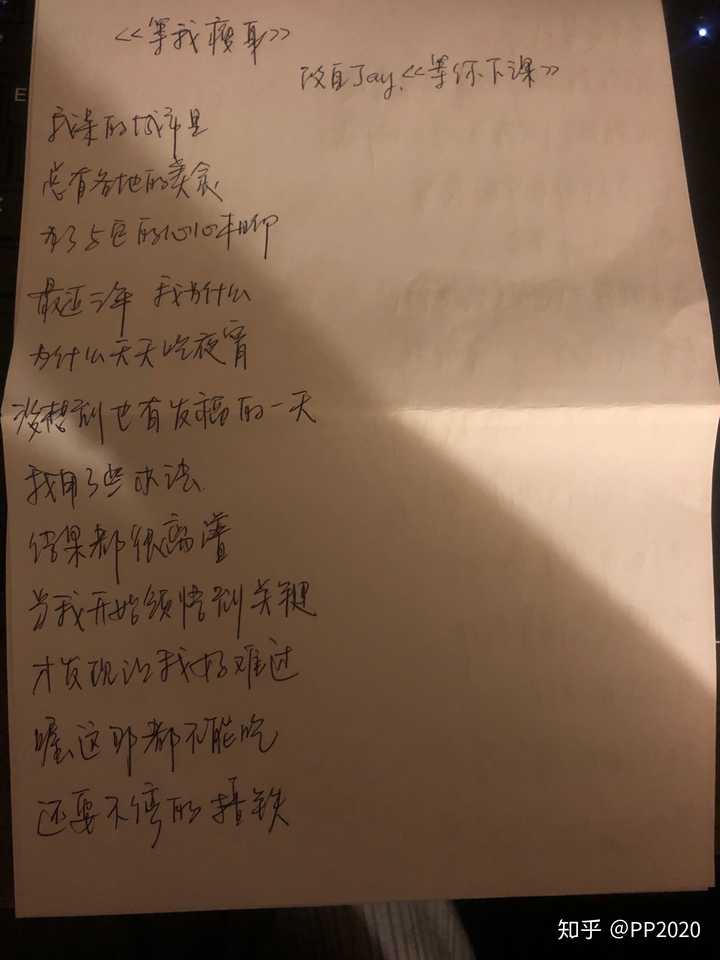 <<等我瘦身>>
改自Jay.<<等你下课>>
我深的城市里
总有各地的美食
有了与它的心心相印
最近三年 我为什么
为什么天天吃夜宵
没想到也有发福的一天
我用了些办法
结果都很离谱
当我开始领悟到关键
才发现让我好难过
喔这那都不能吃
还要不停的撸铁
知乎 @PP2020